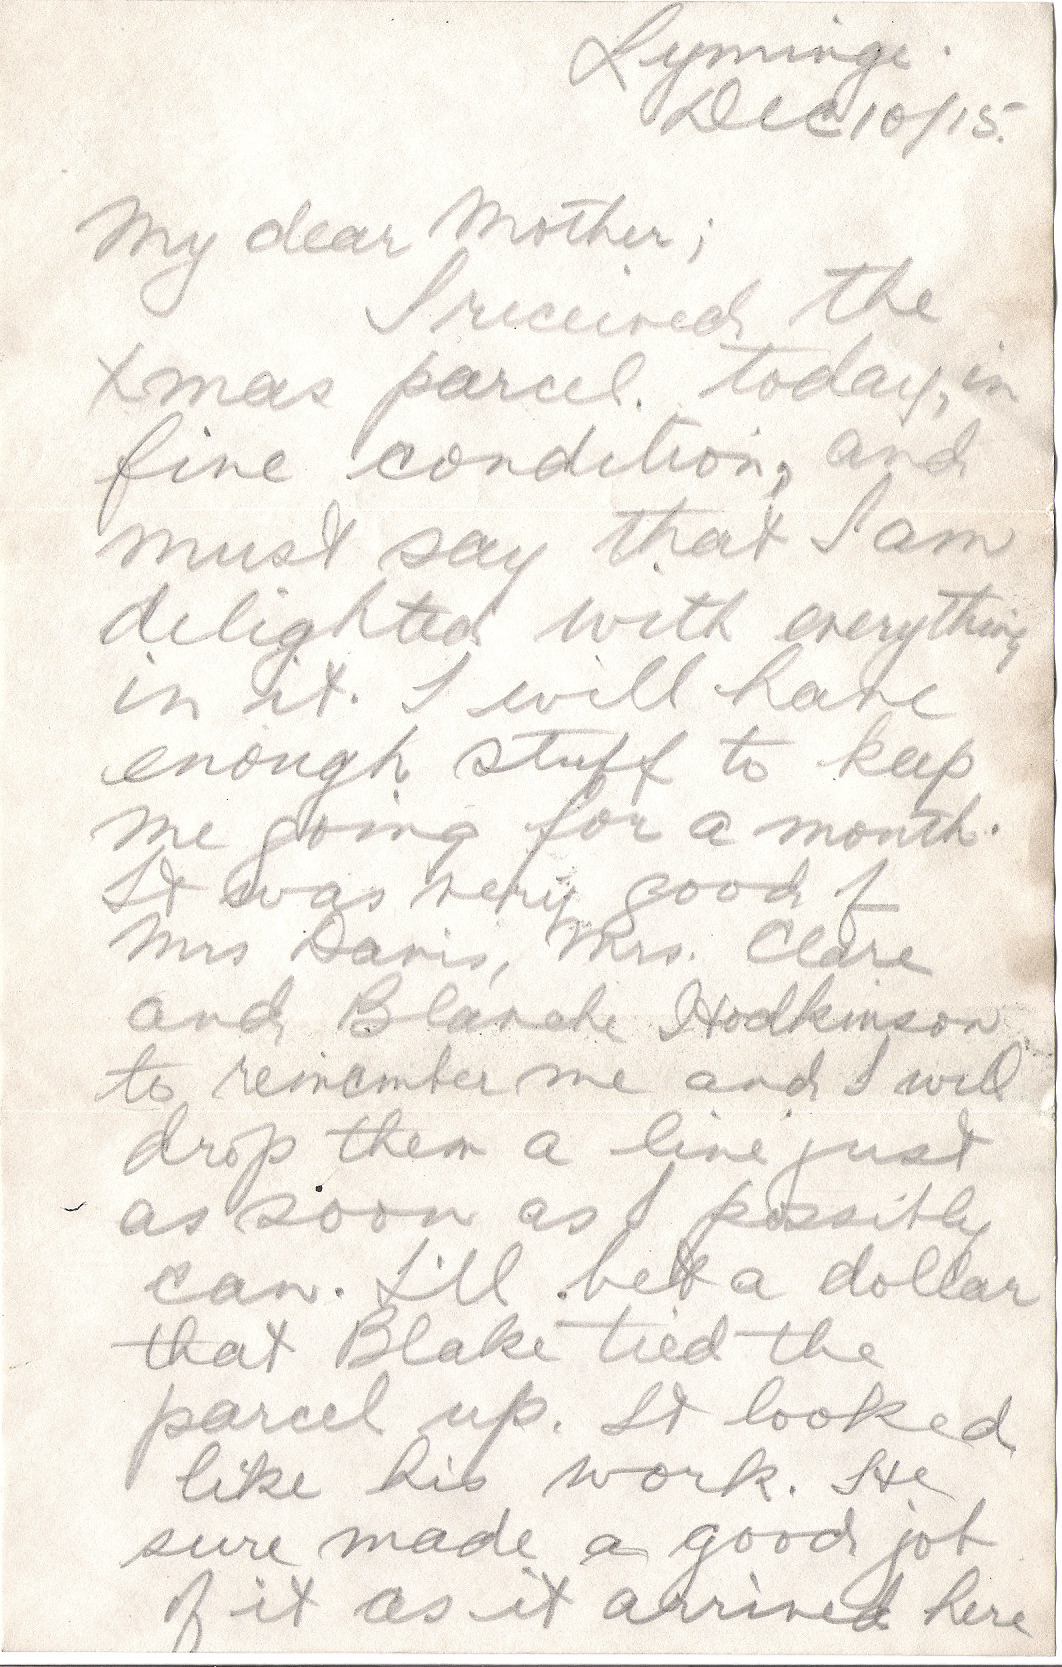 Lyminge.
Dec 10/15.
My dear Mother;
I received the
Xmas parcel today, in
fine condition, and
must say that I am
delighted with everything
in it. I will have
enough stuff to keep
me going for a month.
It was very good of
Mrs Davis, Mrs. Clare
and Blanche Hodkinson
to remember me and I will
drop them a line just
as soon as I possibly
can. I'll bet a dollar
that Blake tied the
parcel up. It looked
like his work. He
sure made a good job
of it as it arrived here